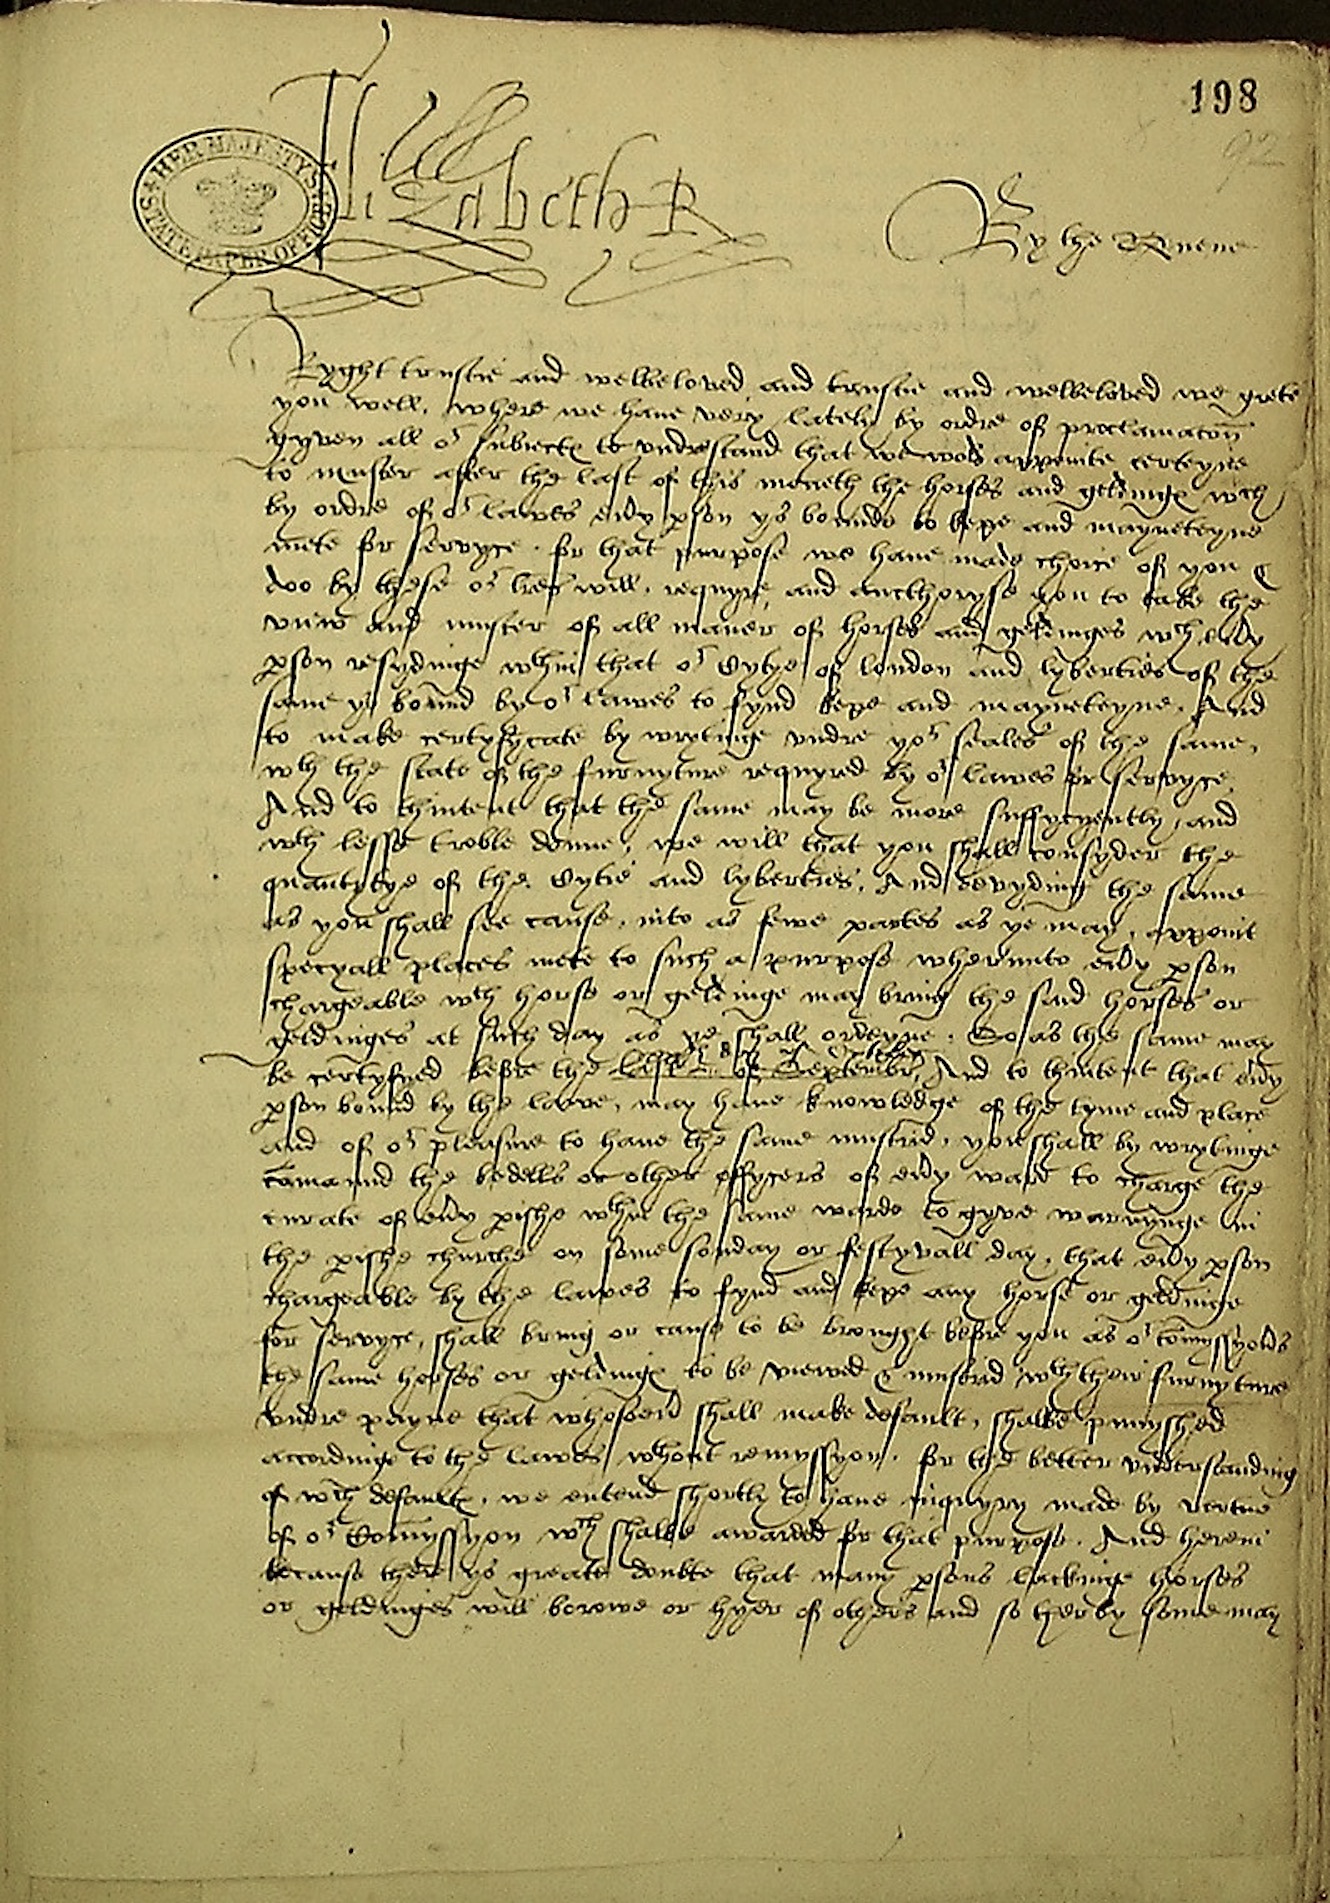 198
92
HER MAJESTY'S STATE PAPER OFFICE
Elizabeth R
By the Quene
Ryght trustie and welbeloved and trustie and welbeloved we grete
you well. Where we have very lately by ordre of proclamacon
gyven all or subiects to undrestand that we wold appointe certeyne
to muster after the last of this moneth the horses and geldings wch
by ordre of or lawes evy pson ys bounde to kepe and mayneteyne
mete for servyce. for that purpose we have made choice of you &
doo by these or lres will, requyre, and aucthoryse you to take the
view and muster of all maner of horses and geldinges wch evy
pson resydinge wthin that or Cytye of london and lyberties of the
same ys bound by or lawes to fynd kepe and mayneteyne. And
to make certyfycate by wrytinge undre yor seales of the same,
wth the state of the furnyture requyred by or lawes for servyce.
And to thintent that the same may be more suffycyently, and
wth lesse troble donne, we will that you shall consyder the
quantytye of the Cytie and lyberties, And devyding the same
as you shall see cause, into as fewe partes as ye may, appoint
specyall places mete to such a purpose wherunto evy pson
chargeable wth horse or geldinge may bring the said horses or
geldinges at such day as ye shall ordeyne. So as the same may
be certyfyed before the last of Septembr, And to thintent that evy
pson bound by the lawe, may have knowledge of the tyme and place
and of or pleasure to have the same mustrid, you shall by wrytinge
comaund the bedells or other offycers of evy ward to charge the
curate of evy pishe wthin the same warde to gyve warnynge in
the pishe churche on some sonday or festyvall day, that evy pson
chargeable by the lawes to fynd and kepe any horse or geldinge
for servyce, shall bring or cause to be brought before you as or comyssyoñs
the same horses or geldings to be viewed & mustrid wth their furnyture
undre payne that whosoevr shall make default, shalbe punyshed
accordinge to the lawes wthout remyssyon. for the better understanding
of wch defaults, we entend shortly to have inquyry made by vertue
of or Comyssyon wch shalbe awarded for that purpose. And herein
because there ys greate doubte that many psons lackinge horses
or geldinges will borowe or hyer of others and so therby some may